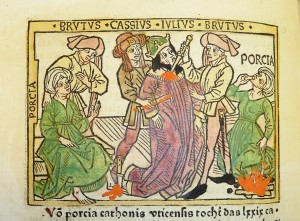 · BRVTVS · CASSIVS · IVLIVS · BRVTVS ·
PORCIA
PORCIA
Vō porcia cathonis vticensis tocht̄ das lxxix ca